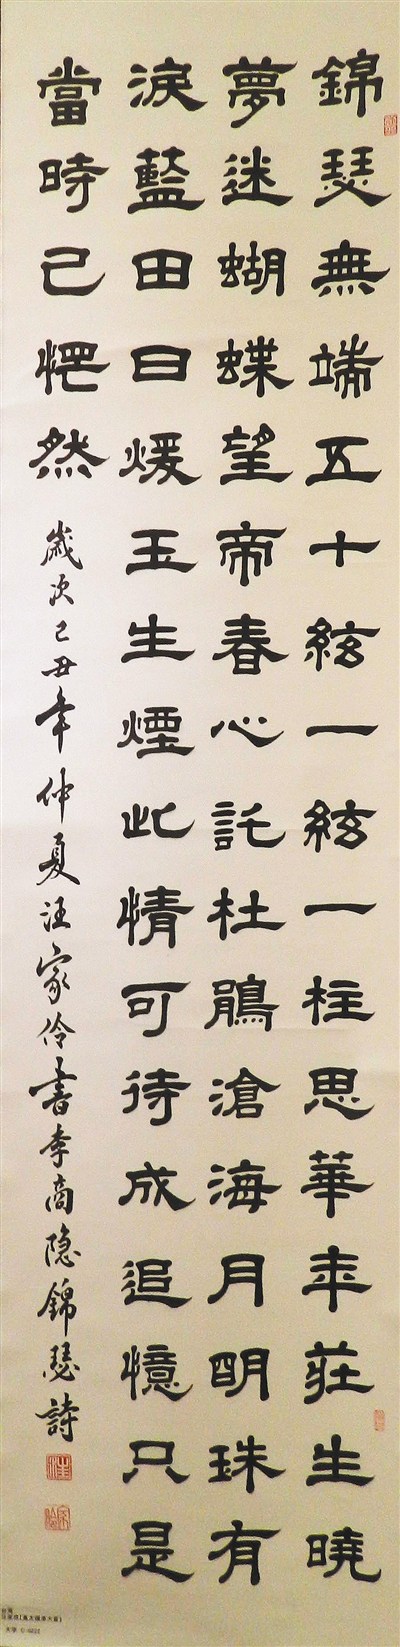 錦瑟無端五十絃一絃一柱思華年莊生曉
夢迷蝴蝶望帝春心託杜鵑滄海月明珠有
淚藍田日煖玉生煙此情可待成追憶只是
當時已惘然 歲次己丑年仲夏汪家伶書李商隐錦瑟詩